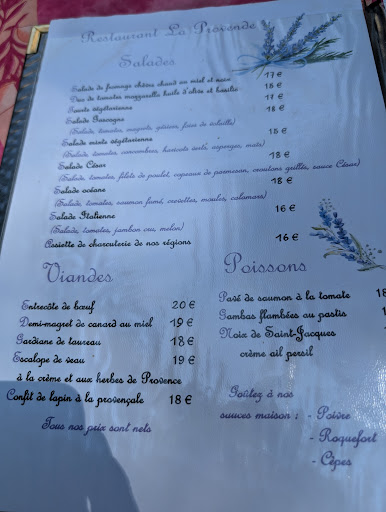 Restaurant La Provende
Salades
Salade de fromage chèvre chaud au miel et noix 17 €
Duo de tomates mozzarella huile d'olive et basilic 16 €
Tourte végétarienne 17 €
Salade Gascogne 18 €
(Salade, tomates, magrets, gésiers, foies de volaille)
Salade mixte végétarienne 15 €
(Salade, tomates, concombres, haricots verts, asperges, maïs)
Salade César 18 €
(Salade, tomates, filets de poulet, copeaux de parmesan, croutons grillés, sauce César)
Salade océane 18 €
(Salade, tomates, saumon fumé, crevettes, moules, calamars)
Salade Italienne 16 €
(Salade, tomates, jambon cru, melon)
Assiette de charcuterie de nos régions 16 €
Viandes
Entrecôte de bœuf 20 €
Demi-magret de canard au miel 19 €
Gardiane de taureau 18 €
Escalope de veau 19 €
à la crème et aux herbes de Provence
Confit de lapin à la provençale 18 €
Tous nos prix sont nets
Poissons
Pavé de saumon à la tomate 18
Gambas flambées au pastis
Noix de Saint-Jacques
crème ail persil
Goûtez à nos
sauces maison : - Poivre
- Roquefort
- Cèpes